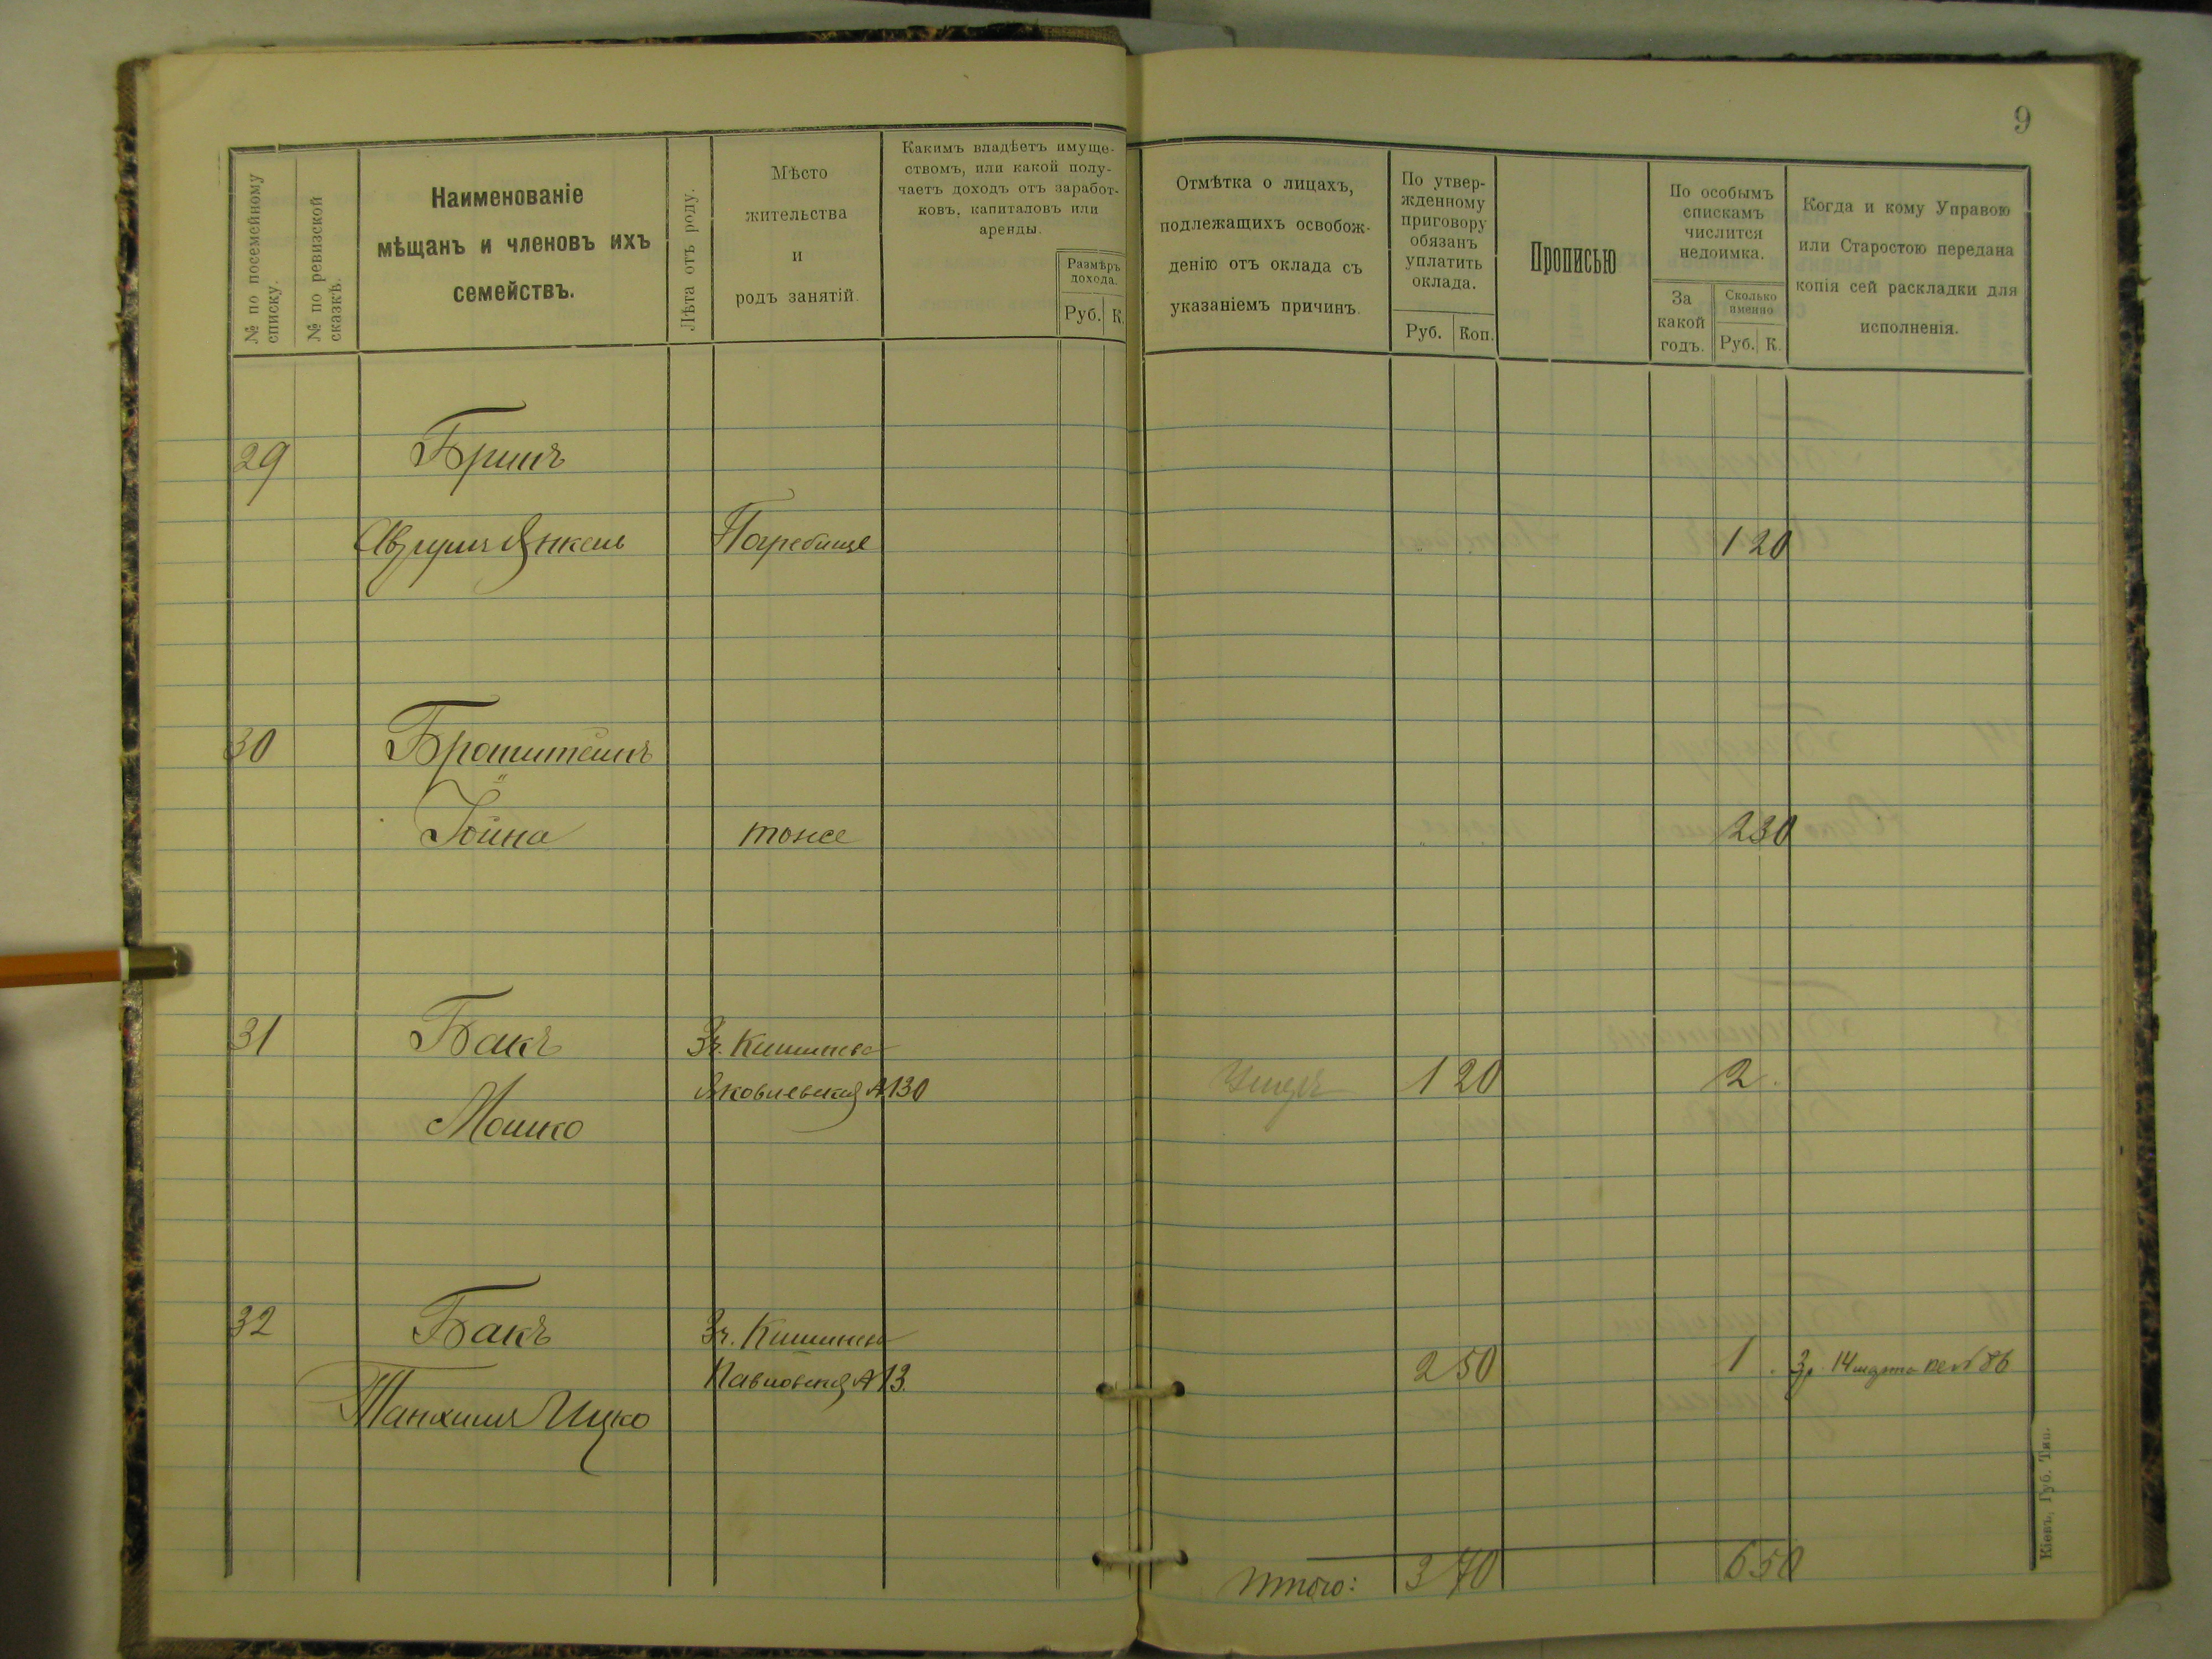 9
№ по посемейному списку.
№ по ревизской сказкѣ.
Наименованіе
мѣщанъ и членовъ ихъ
семействъ.
Лѣта отъ роду.
Мѣсто
жительства
и
родъ занятій.
Какимъ владѣетъ имуще-
ствомъ, или какой полу-
чаетъ доходъ отъ заработ-
ковъ, капиталовъ или
аренды.
Размѣръ
дохода.
Руб. К.
Отмѣтка о лицахъ,
подлежащихъ освобож-
денію отъ оклада съ
указаніемъ причинъ.
По утвер-
жденному
приговору
обязанъ
уплатить
оклада.
Руб. Коп.
Прописью
По особымъ
спискамъ
числится
недоимка.
За
какой
годъ.
Сколько
именно
Руб. К.
Когда и кому Управою
или Старостою передана
копія сей раскладки для
исполненія.
29 Бринъ
Аврумъ Янкель Погребище 1 20
30 Бронштейнъ
Іойна тоже 2 30
31 Бакъ Кишинева
Яковлевская №130 1 20 2
Мошко
32 Бакъ Кишинева
Павловская №13. 2 50 1 14 марта 86
Танхимъ Ицко
Итого: 3 70 6 50
Кіевъ, Губ. Тип.